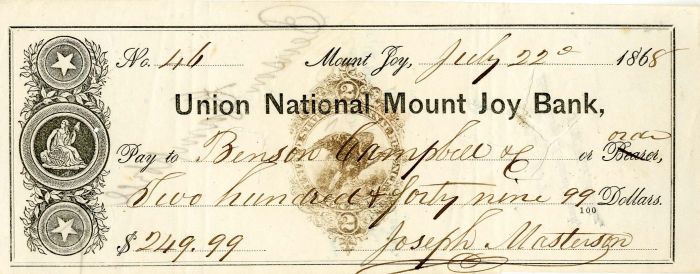 No. 46 Mount Joy, July 22d 1868
Union National Mount Joy Bank,
order
Pay to Benson Campbell & C or Bearer,
Two hundred & forty nine 99/100 Dollars.
$249.99 Joseph Masterson
2
2